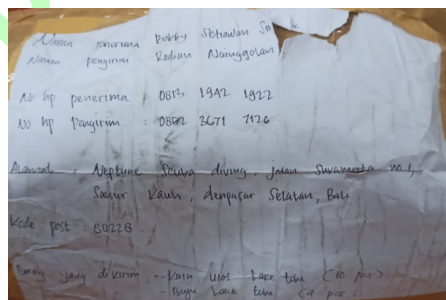 Nama penerima Bobby Setiawan
Nama pengirim Radian Nainggolan
No hp penerima : 0813 1942 1922
No hp Pengirim : 0852 3671 7126
Alamat : Neptune Scuba diving, jalan Sukamerta no 1,
Sanur Kauh, denpasar Selatan, Bali
Kode post : 80228
Barang yang dikirim - Kain Ulos Lake toba (10 pcs)
- Lake toba